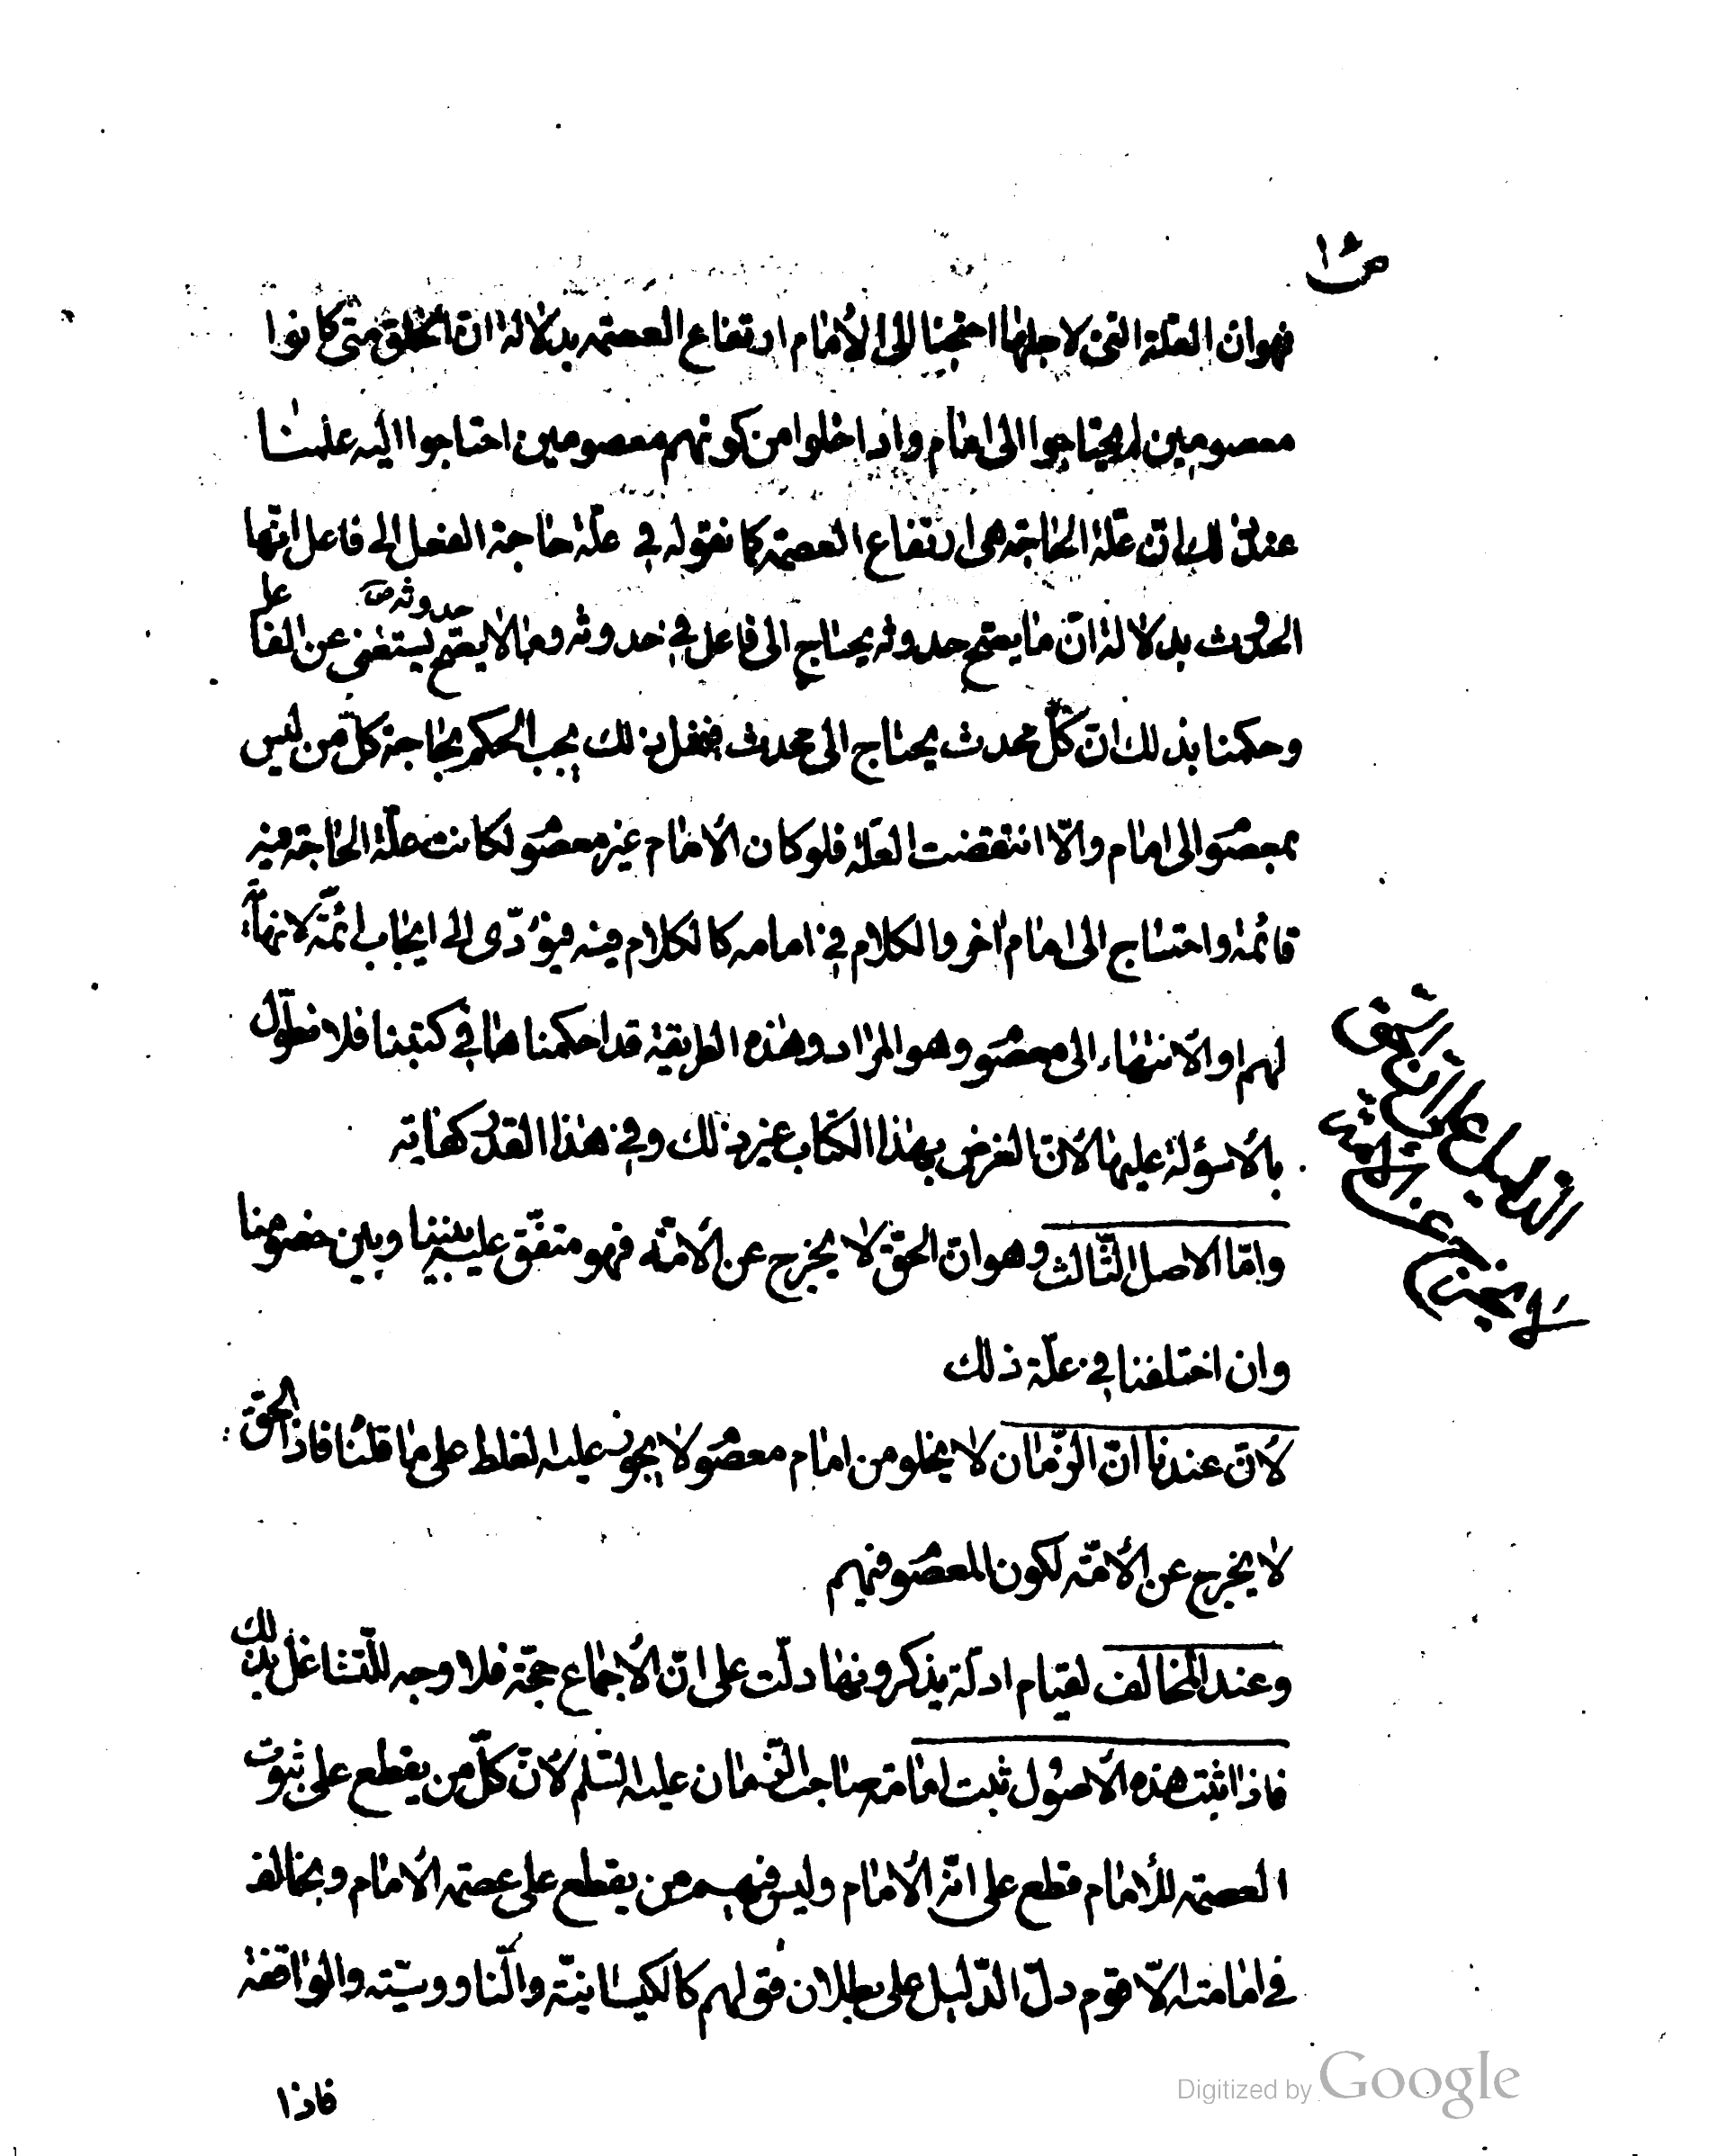 فهو ان العلة التی لاجلها احتجنا الی الامام ارتفاع العصمة بدلالة ان الخلق متی کانوا
معصومین لم یحتاجوا الی امام واذا خلوا من کونهم معصومین احتاجوا الیه علمنا
عند ذلك ان علّة الحاجة هی ارتفاع العصمة کما نقوله فی علّة حاجة الفعل الی فاعل انّها
الحدوث بدلالة انّ ما یصح حدوثه یحتاج الی فاعل فی حدوثه وما لا یصح حدوثه یستغنی عن الفاعل
وحکمنا بذلك انّ کلّ محدث یحتاج الی محدث فمثل ذلك یجب الحکم بحاجة کلّ من لیس
بمعصوم الی امام والّا انتقضت العلّة فلو کان الامام غیر معصوم لکانت علّة الحاجة فیه
قائمة واحتاج الی امام اخر والکلام فی امامه کالکلام فیه فیؤدّی الی ایجاب ائمّة لا نهایة
لهم او الانتهاء الی معصوم وهو المراد وهذه الطریقة قد احکمناها فی کتبنا فلا نطوّل
بالاسؤلة علیها لانّ الغرض بهذا الکتاب غیر ذلك وفی هذا القدر کفایة
وامّا الاصل الثّالث وهو انّ الحقّ لا یخرج عن الامّة فهو متفق علیه بیننا وبین خصومنا
وان اختلفنا فی علّة ذلك
لانّ عندنا انّ الزّمان لا یخلو من امام معصوم لا یجوز علیه الغلط علی ما قلناه فاذا الحقّ
لا یخرج عن الامّة لکون المعصوم فیهم
وعند المخالف لقیام ادلّة یذکرونها دلّت علی انّ الاجماع حجّة فلا وجه للتّشاغل بذلك
فاذا ثبتت هذه الاصول ثبت امامة صاحب الزّمان علیه السّلم لانّ کلّ من یقطع علی ثبوت
العصمة للامام قطع علی انّه الامام ولیس فیهم من یقطع علی عصمة الامام ویخالف
فی امامته الّا قوم دلّ الدّلیل علی بطلان قولهم کالکیسانیّة والنّاووسیّة والواقفة
فاذا
Digitized by Google